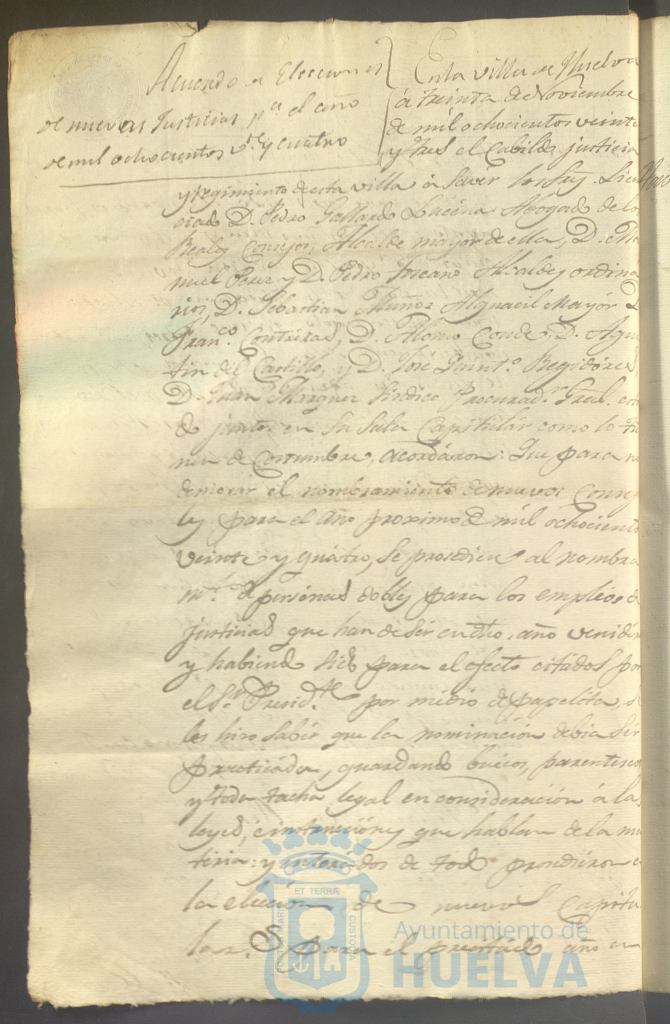 Acuerdo de Elecciones
de nuevas Justicias p.ª el año
de mil ochocientos v.te y cuatro
En la villa de Huelva
á treinta de Noviembre
de mil ochocientos veinte
y tres el Cabildo justicia
y regimiento de esta villa á saver los Sres. Licen
ciado D. Pedro Gallardo Lucena Abogado de los
Reales Consejos, Alcalde mayor de ella, D. Ma
nuel Perez y D. Pedro Toscano Alcaldes ordina
rios, D. Sebastian Muñoz Alguacil Mayor D.
Fran.co Contreras, D. Alonso Conde, D. Agus
tin del Castillo, y D. José Quint.º Regidores
D. Juan Marquez Sindico Procurad.r Gral. 
do juntos en su Sala Capitular como lo tie
nen de Costumbre, acordaron: Que para no
demorar el nombramiento de nuevos Conse
les para el año proximo de mil ochociento
veinte y quatro, se prosediese al nombra
m.to de personas dobles para los empleos de
justicias que han de ser en dho. año venide
y habiendo sido para el efecto citados por
el S.or Presid.te por medio de papeleta, se
les hizo saber que la nominacion debia ser
practicada, guardando huecos, parentesco
y toda tacha legal en consideración á las
leyes, é instrucciones que hablan de la ma
teria: y de todo prosedieron a
la elección de nuevos Capitu
lar.s para el año
MARIS ET TERRÆ CUSTODIA
Ayuntamiento de
HUELVA